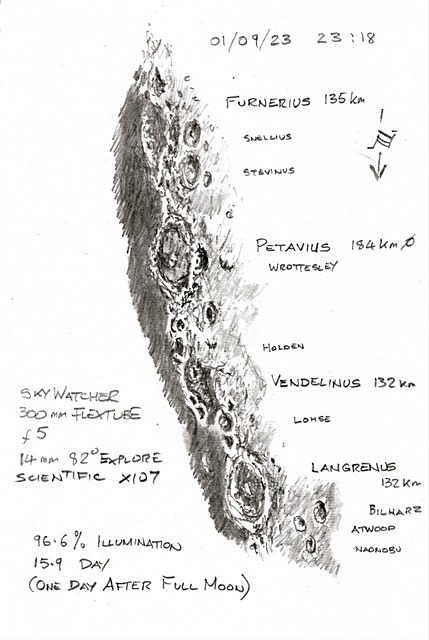 01/09/23 23:18
FURNERIUS 135 km
SNELLIUS
STEVINUS
N
PETAVIUS 184 km Ø
WROTTESLEY
HOLDEN
VENDELINUS 132 km
LOHSE
SKYWATCHER
300 mm FLEXTUBE
f5
14 mm 82° EXPLORE
SCIENTIFIC X107
LANGRENUS
132 km
BILHARZ
ATWOOD
NAONOBU
96.6% ILLUMINATION
15.9 DAY
(ONE DAY AFTER FULL MOON)